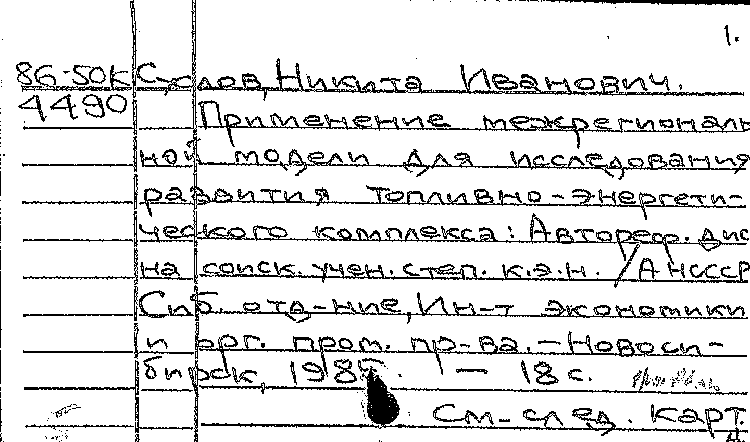 1.
86-50К Суслов, Никита Иванович.
4490 Применение межрегиональ
ной модели для исследования
развития топливно-энергети-
ческого комплекса: Автореф. дис
на соиск. учен. степ. к.э.н. / АН СССР
Сиб. отд-ние, Ин-т экономики
и орг. пром. пр-ва. - Новоси-
бирск, 1985. - 18 с.
См. след. карт.